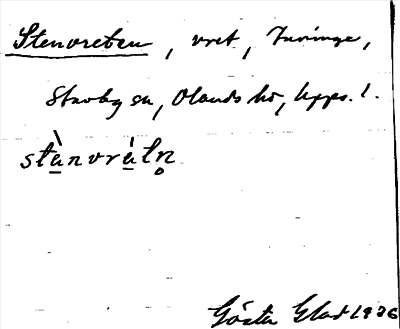 Stenvreten, vret, Tuvinge,
Stavby sn, Olands hd, Upps. l.
stà̱nvrá̱tn̥
Gösta Elad 1936